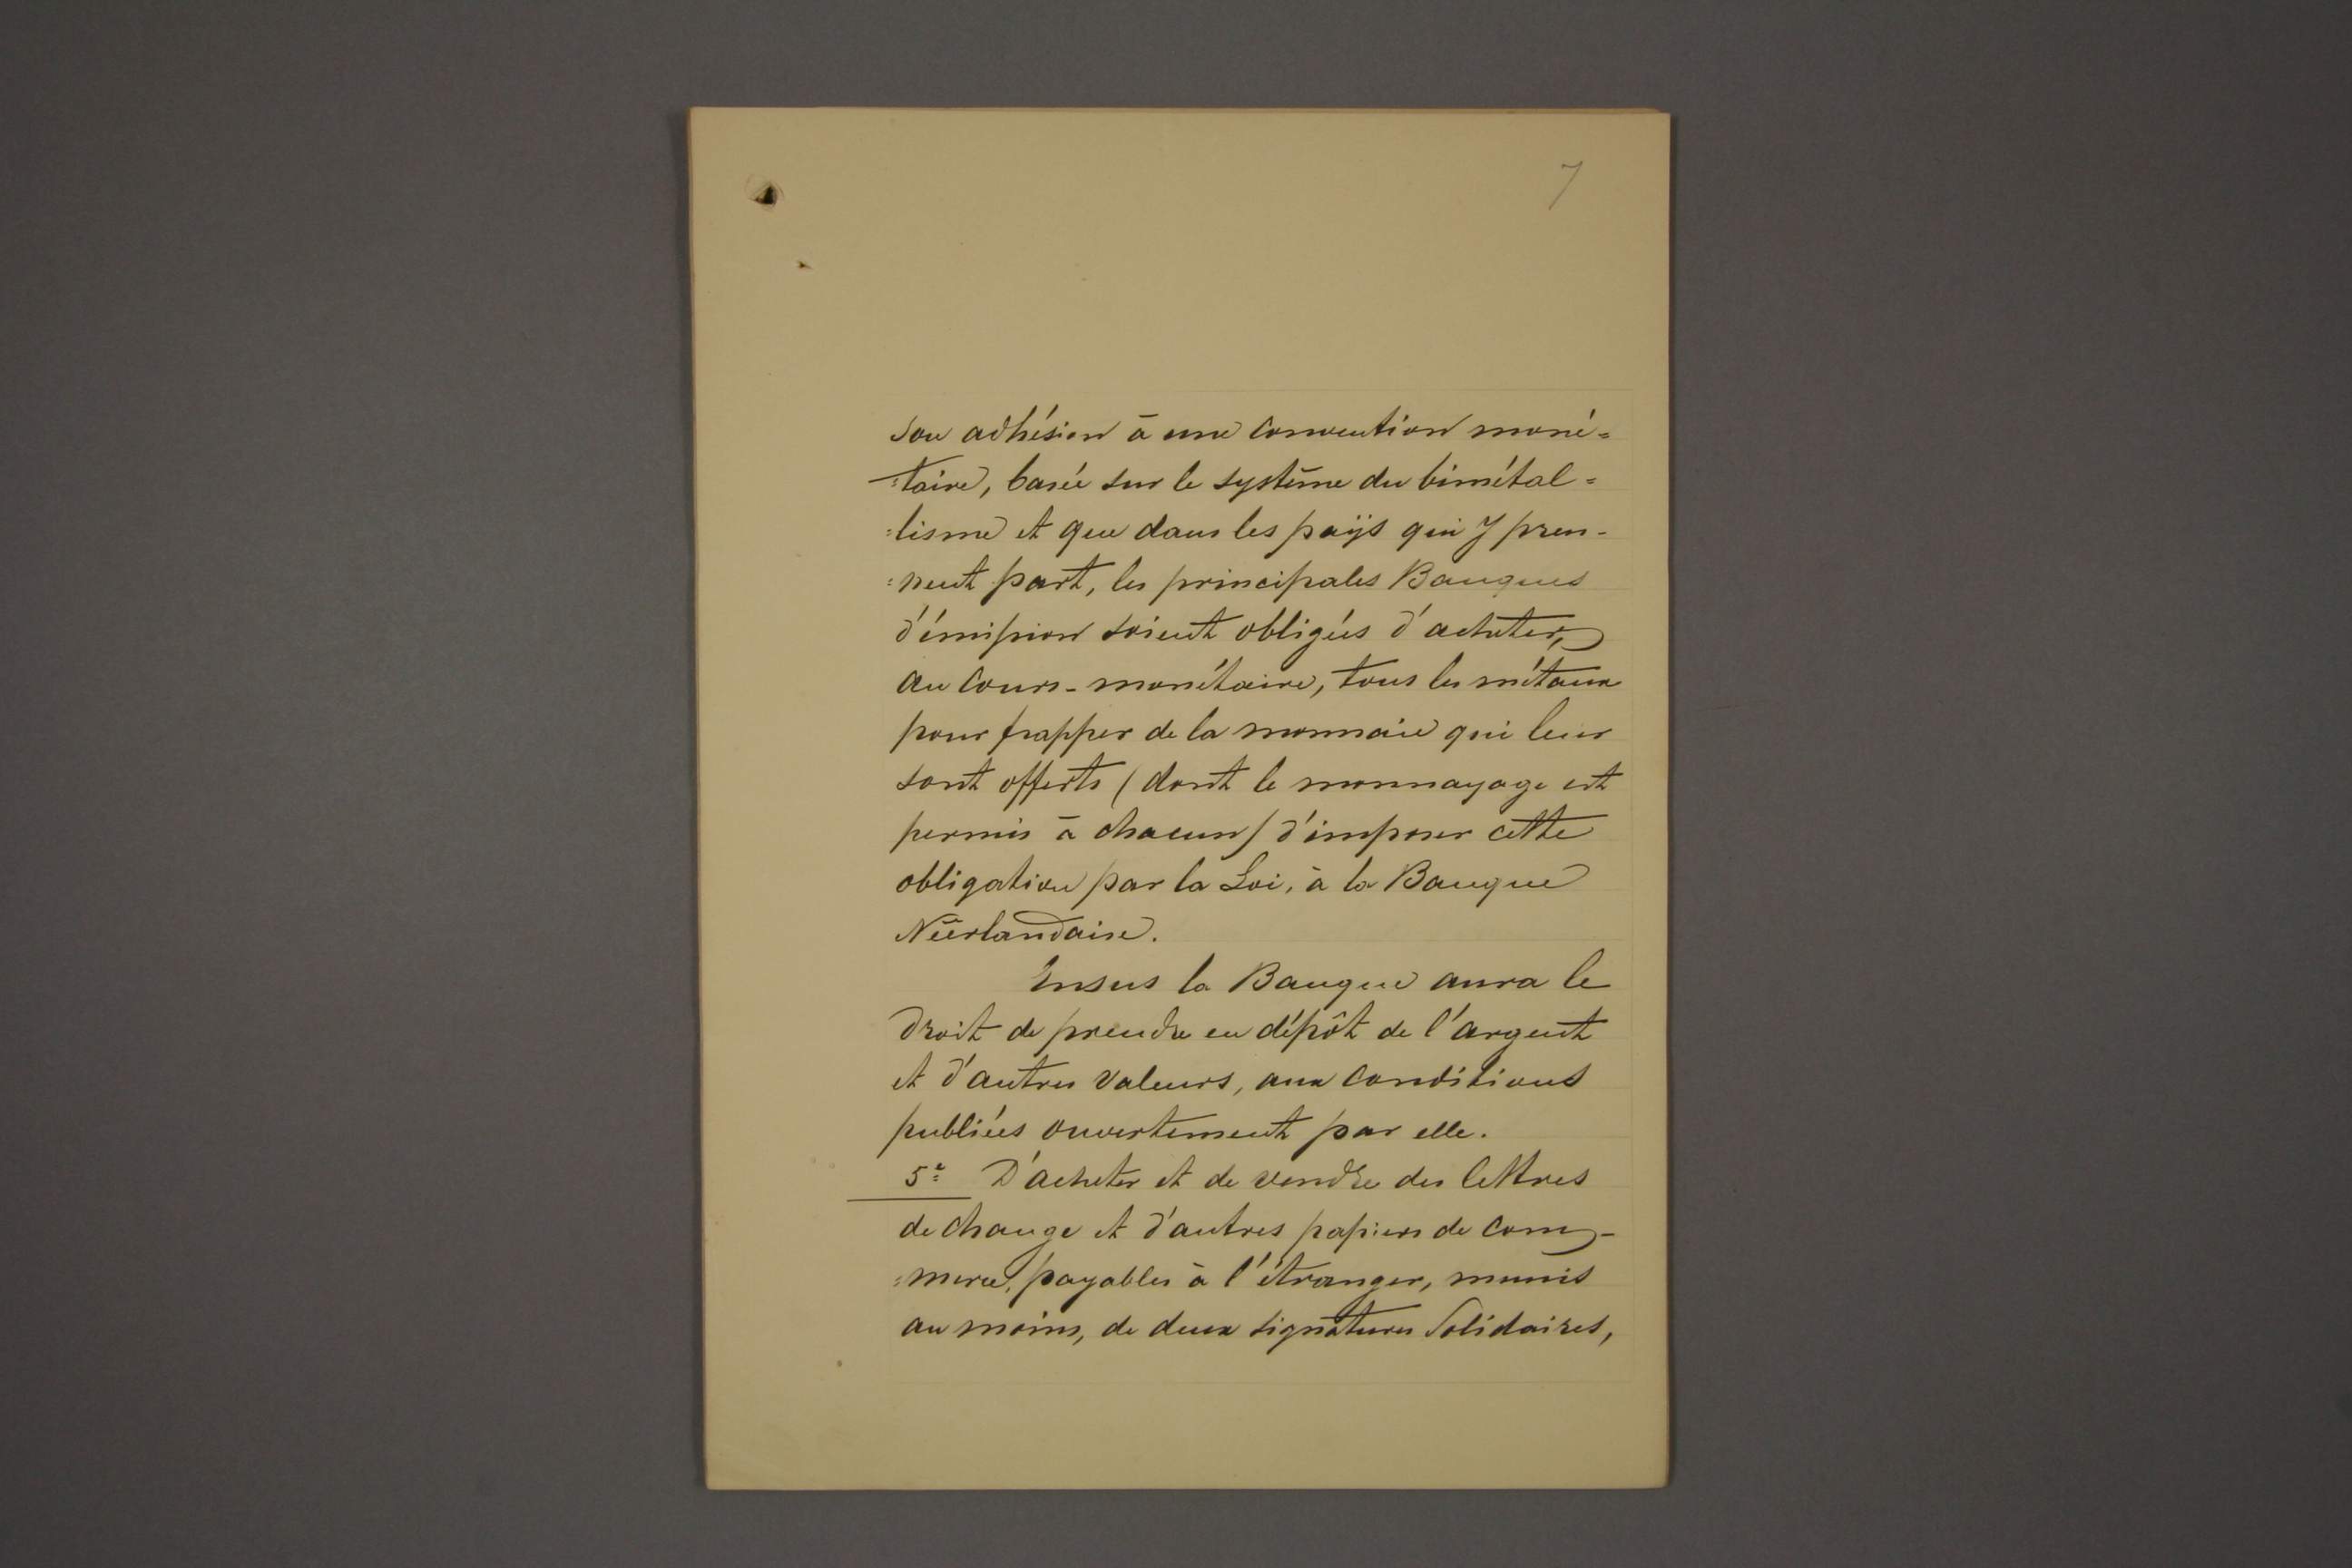 7
son adhésion à une convention moné=
=taire, basée sur le système du bimétal=
=lisme et que dans les païjs qui y pren-
=nent part, les principales Banques
d'émission soient obligées d'acheter,
au cours-monétaire, tous les métaux
pour frapper de la monnaie qui leur
sont offerts (dont le monnayage est
permis à chacun) d'imposer cette
obligation par la Loi, à la Banque
Néerlandaise.
Ensus la Banque aura le
droit de prendre en dépôt de l'argent
et d'autres valeurs, aux conditions
publiées ouvertement par elle.
5e D'acheter et de vendre des lettres
de change et d'autres papiers de com-
=merce, payables à l'étranger, munis
au moins, de deux signatures Solidaires,